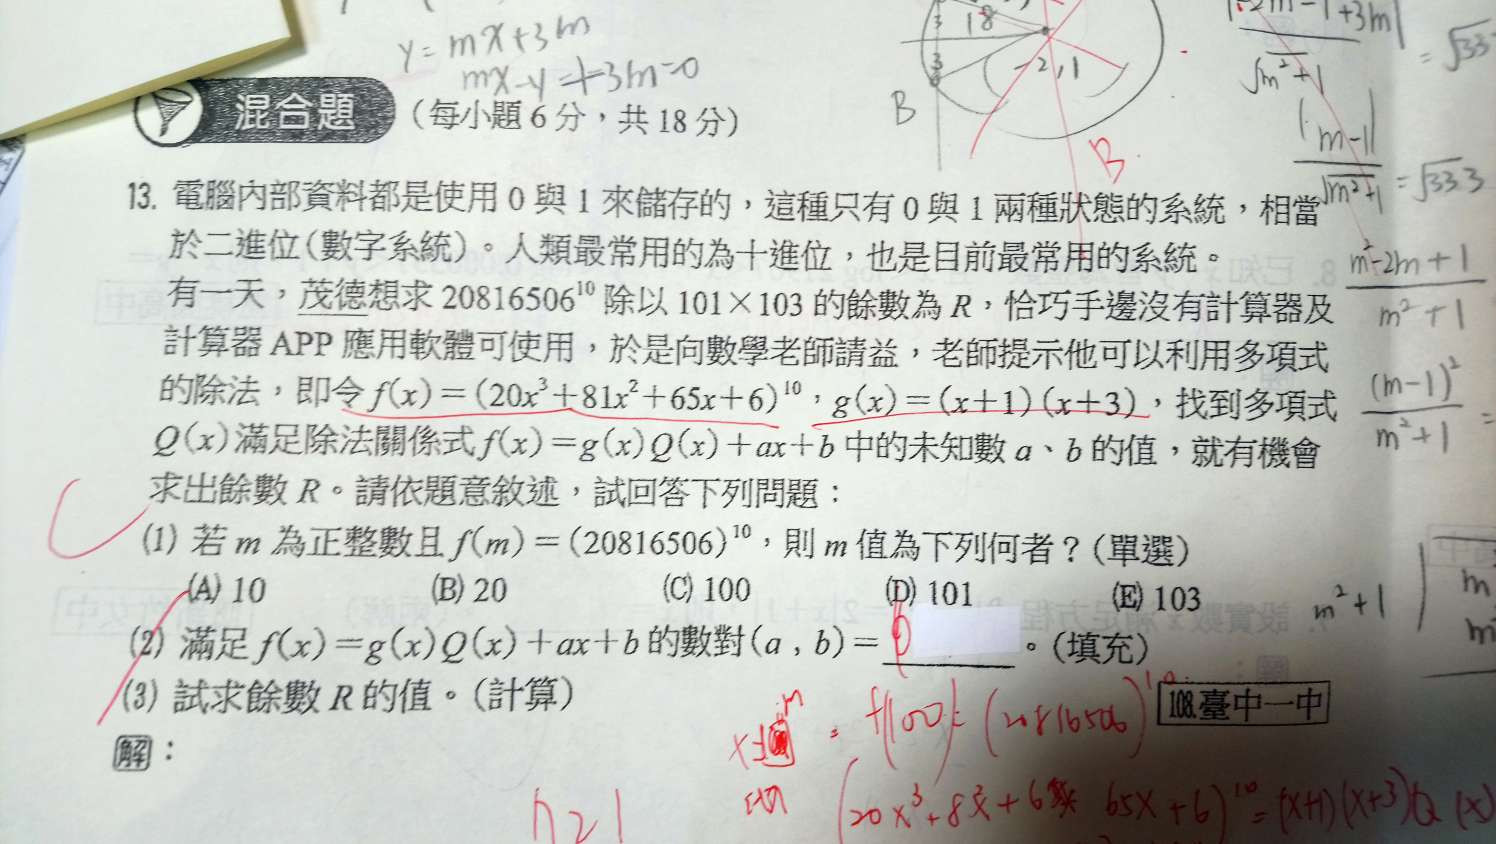 y = mx+3m
mx-y+3m=0
18
-2,1
B
B
混合題 (每小題 6 分，共 18 分)
13. 電腦內部資料都是使用 0 與 1 來儲存的，這種只有 0 與 1 兩種狀態的系統，相當
於二進位(數字系統)。人類最常用的為十進位，也是目前最常用的系統。
有一天，茂德想求 20816506¹⁰ 除以 101×103 的餘數為 R，恰巧手邊沒有計算器及
計算器 APP 應用軟體可使用，於是向數學老師請益，老師提示他可以利用多項式
的除法，即令 f(x)=(20x³+81x²+65x+6)¹⁰，g(x)=(x+1)(x+3)，找到多項式
Q(x)滿足除法關係式 f(x)=g(x)Q(x)+ax+b 中的未知數 a、b 的值，就有機會
求出餘數 R。請依題意敘述，試回答下列問題：
(1) 若 m 為正整數且 f(m)=(20816506)¹⁰，則 m 值為下列何者？(單選)
(A) 10 (B) 20 (C) 100 (D) 101 (E) 103
(2) 滿足 f(x)=g(x)Q(x)+ax+b 的數對(a , b)= 。(填充)
(3) 試求餘數 R 的值。(計算)
108.臺中一中
解：
|m-1|
√m²+1
m²-2m+1
m²+1
(m-1)²
m²+1
m²+1
f(100)= (20816506)¹⁰